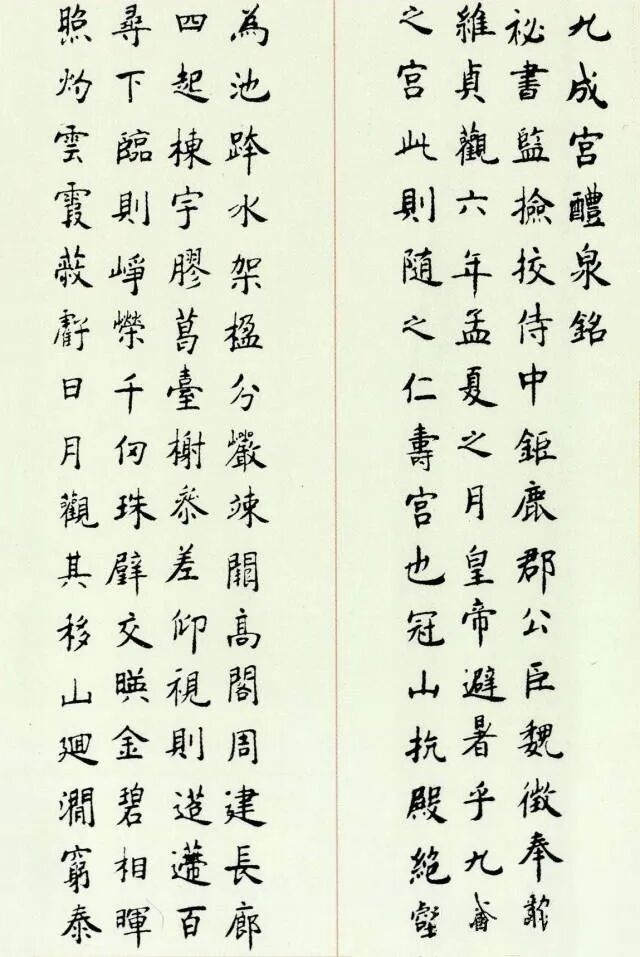 九成宮醴泉銘
祕書監撿挍侍中鉅鹿郡公臣魏徵奉勑
維貞觀六年孟夏之月皇帝避暑乎九成
之宮此則随之仁壽宮也冠山抗殿絕壑
為池跨水架楹分巖竦闕高閣周建長廊
四起棟宇膠葛臺榭叅差仰視則迢遰百
尋下臨則崢嶸千仞珠璧交暎金碧相暉
照灼雲霞蔽虧日月觀其移山廻澗窮泰